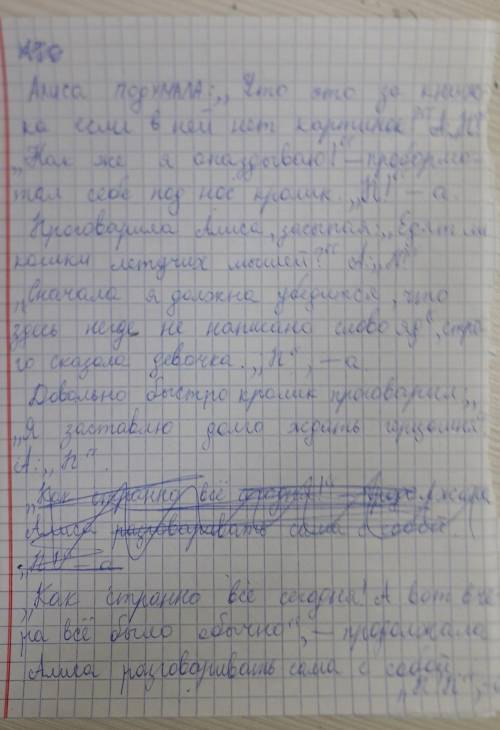 Алиса подумала: „Что это за книж-
ка если в ней нет картинок?" А: „П?"
„Как же я опаздываю!" – пробормо-
тал себе под нос кролик. „П!" – а.
Проговорила Алиса, засыпая: „Едят ли
кошки летучих мышей?" А: „П?"
„Вначала я должна убедится, что
здесь негде не написано слово яд", стро-
го сказала девочка. „П", – а.
Довольно быстро кролик проговорил „
„Я заставлю долго ждать герцогиню"
А: „П".
„Как странно всё сегодня!" – продолжала
Алиса разговаривать сама с собой.
„П!" – а
„Как странно всё сегодня! А вот вче-
ра всё было обычно", – продолжала
Алиса разговаривать сама с собой